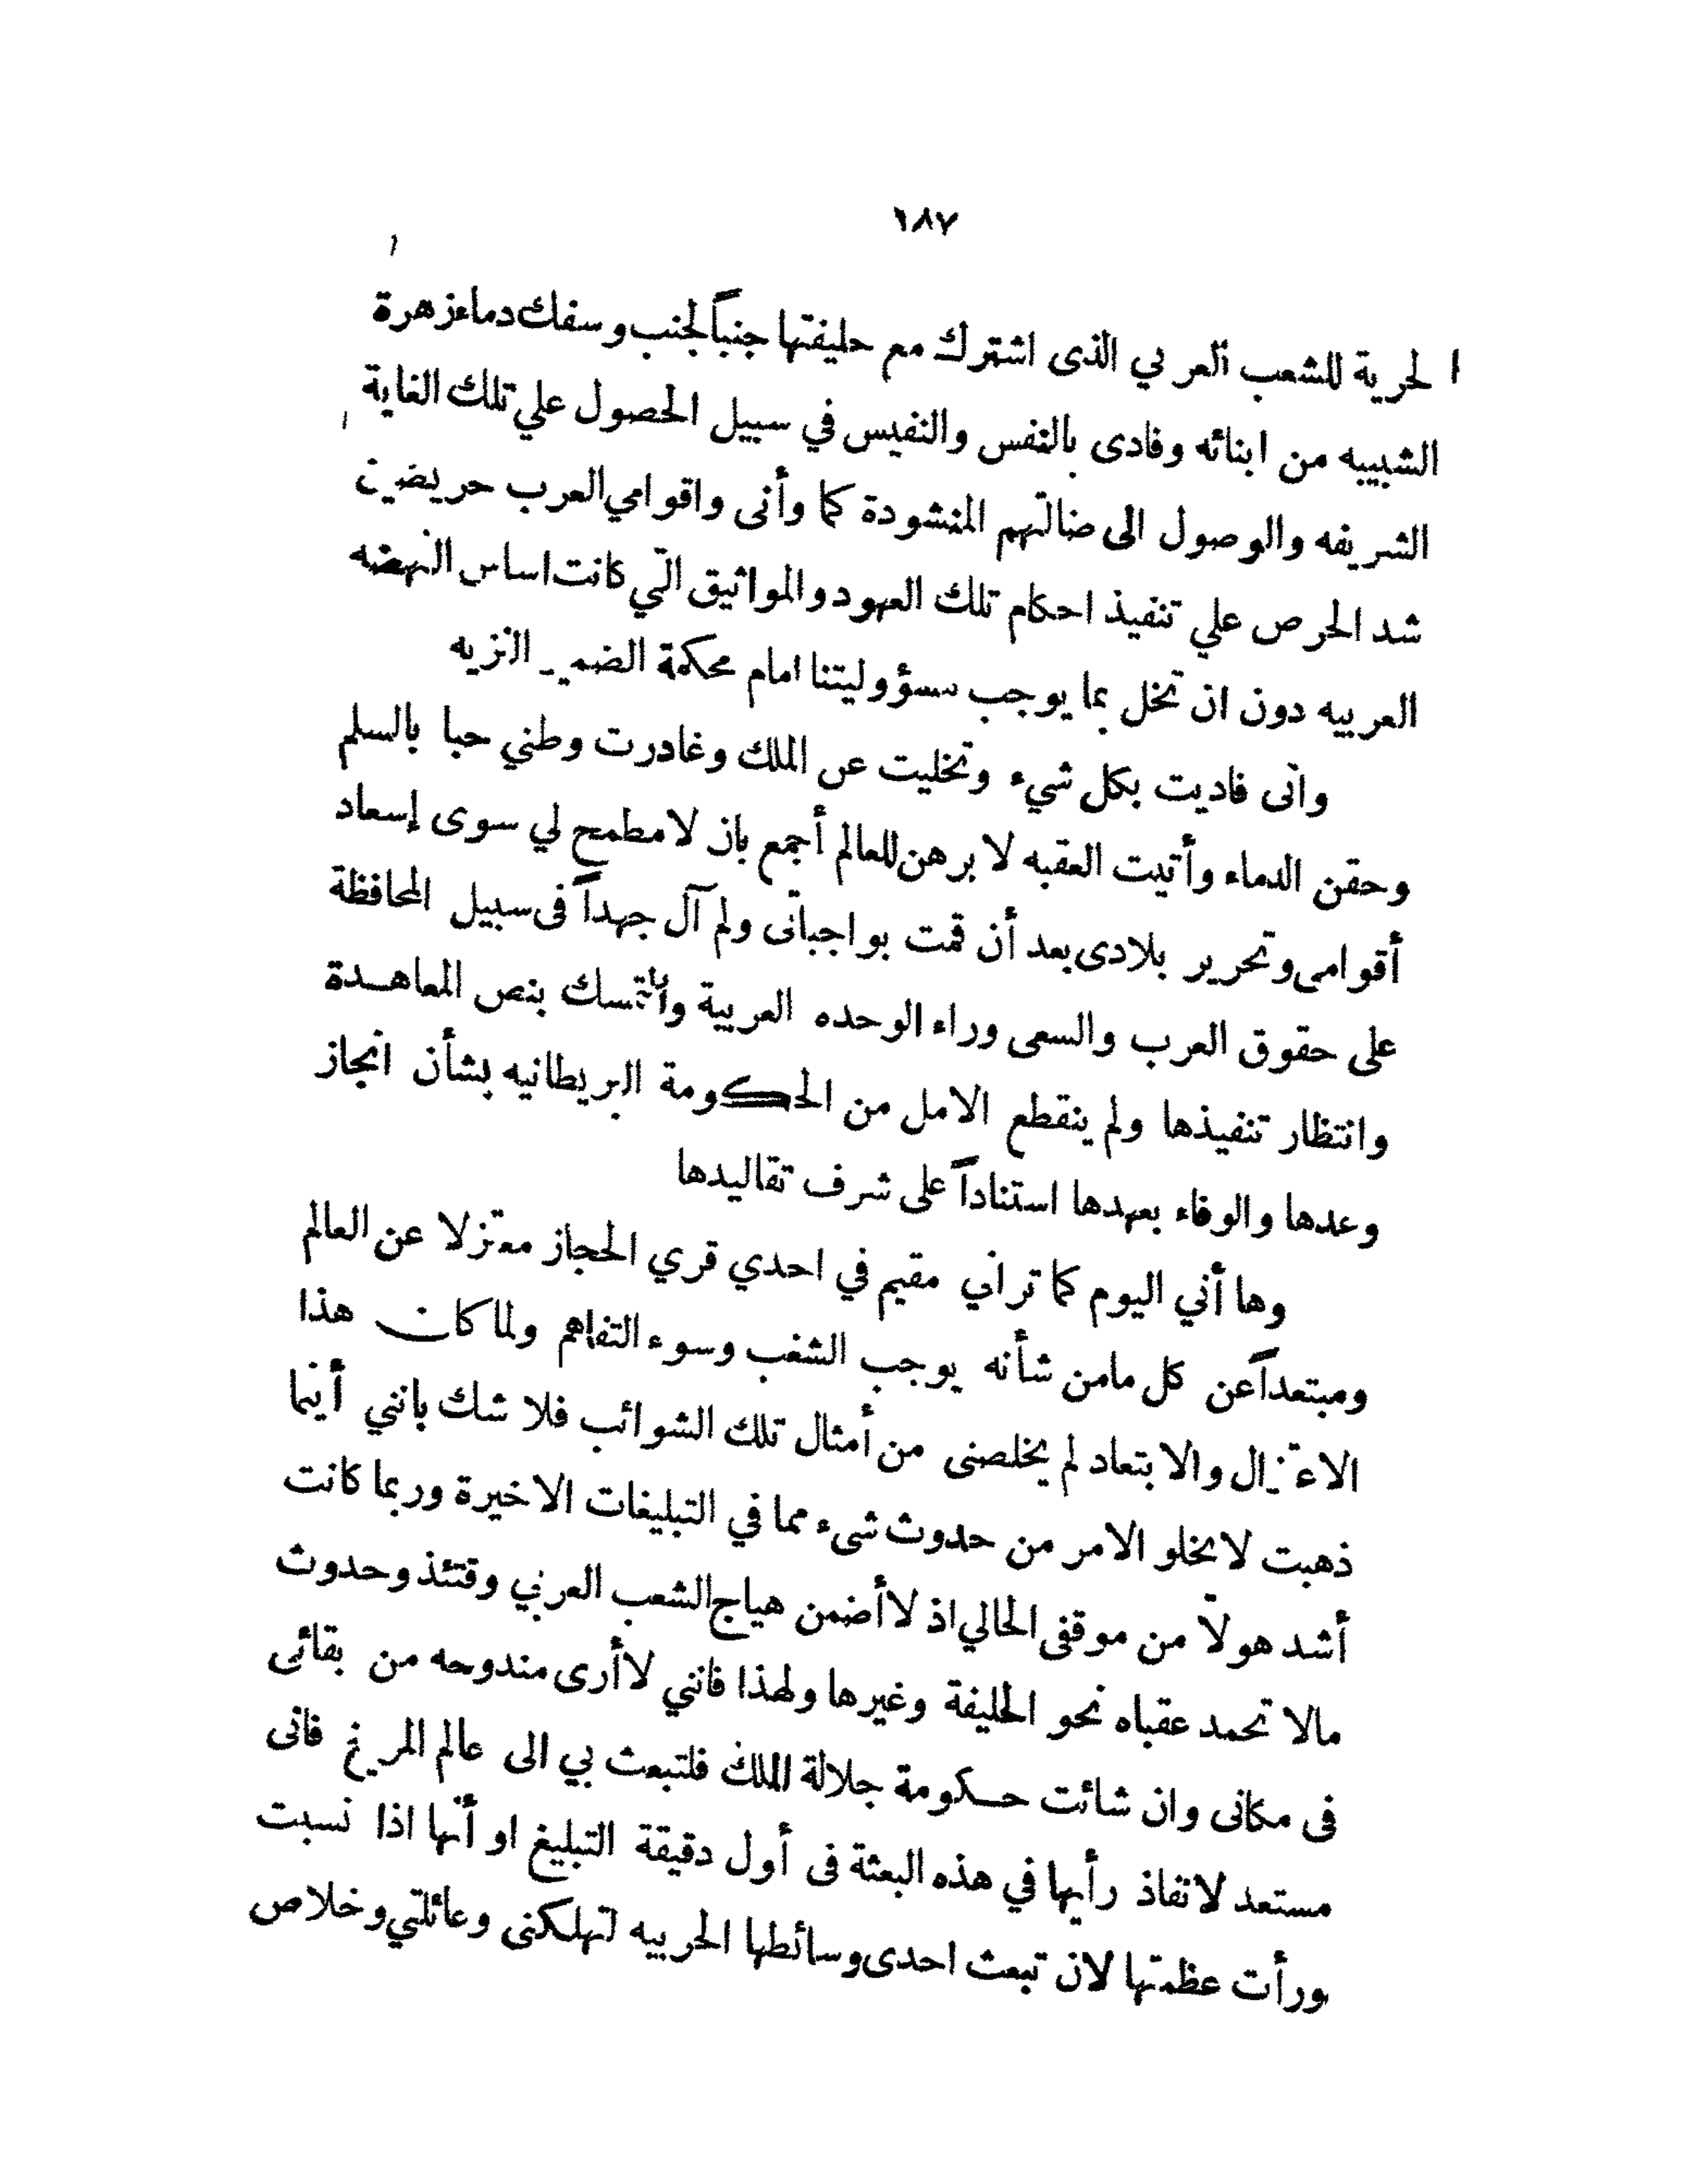 ١٨٧
الحرية للشعب العربي الذى اشترك مع حليفتها جنباً لجنب وسفك دماء زهرة
الشبيبه من ابنائه وفادى بالنفس والنفيس في سبيل الحصول علي تلك الغاية
الشريفه والوصول الى ضالتهم المنشودة كما وأنى واقوامي العرب حريضين
شد الحرص علي تنفيذ احكام تلك العهود والمواثيق التي كانت اساس النهضه
العربيه دون ان تخل بما يوجب مسؤوليتنا امام محكمة الضمير النزيه
وانى فاديت بكل شيء وتخليت عن الملك وغادرت وطني حبا بالسلم
وحقن الدماء وأتيت العقبه لا برهن للعالم أجمع بان لا مطمح لي سوى إسعاد
أقوامى وتحرير بلادى بعد أن قمت بواجباتى ولم آل جهداً فى سبيل المحافظة
على حقوق العرب والسعى وراء الوحده العربية والتمسك بنص المعاهدة
وانتظار تنفيذها ولم ينقطع الامل من الحكومة البريطانيه بشأن انجاز
وعدها والوفاء بعهدها استناداً على شرف تقاليدها
وها أني اليوم كما تراني مقيم في احدي قري الحجاز معتزلا عن العالم
ومبتعداً عن كل مامن شأنه يوجب الشغب وسوء التفاهم ولما كان هذا
الاعتزال والابتعاد لم يخلصنى من أمثال تلك الشوائب فلا شك بانني أينما
ذهبت لا يخلو الامر من حدوث شىء مما في التبليغات الاخيرة وربما كانت
أشد هولا من موقفى الحالي اذ لا أضمن هياج الشعب العربي وقتئذ وحدوث
مالا تحمد عقباه نحو الحليفة وغيرها ولهذا فانني لا أرى مندوحه من بقائى
فى مكانى وان شائت حكومة جلالة الملك فلتبعث بي الى عالم المريخ فانى
مستعد لانفاذ رأيها في هذه البعثة فى أول دقيقة التبليغ او أنها اذا نسبت
ورأت عظمتها لان تبعث احدى وسائطها الحربيه لتهلكنى وعائلتي وخلاص